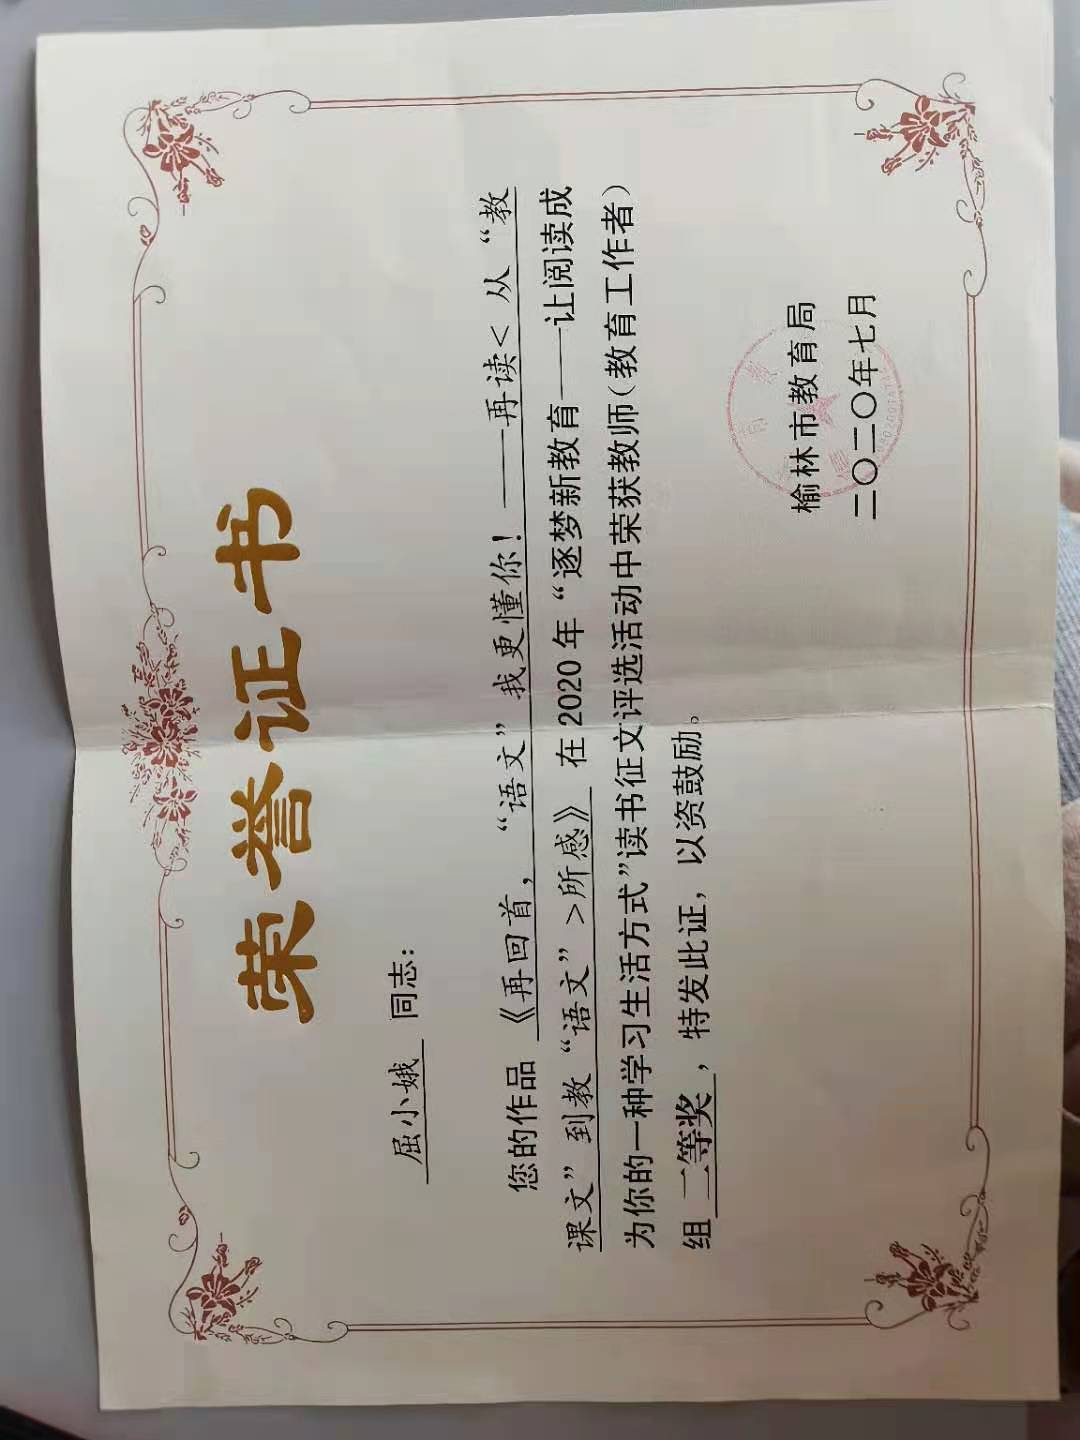 荣誉证书
屈小娥 同志：
您的作品 《再回首，“语文”我更懂你！——再读<从“教
课文”到教“语文”>所感》 在 2020 年“逐梦新教育——让阅读成
为你的一种学习生活方式”读书征文评选活动中荣获教师（教育工作者）
组 二等奖，特发此证，以资鼓励。
榆林市教育局
二〇二〇年七月